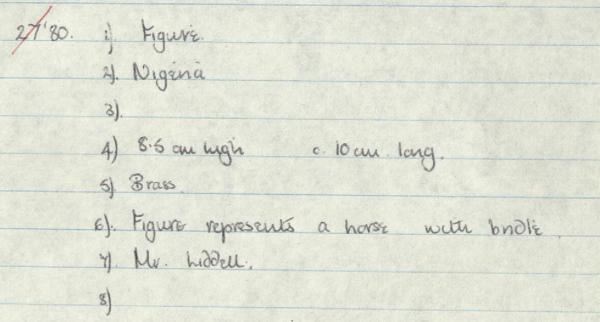 27'80. 1) Figure.
2). Nigeria
3).
4) 8.5 cm high c. 10cm. long.
5) Brass.
6). Figure represents a horse with bridle.
7). Mr. Liddell.
8)